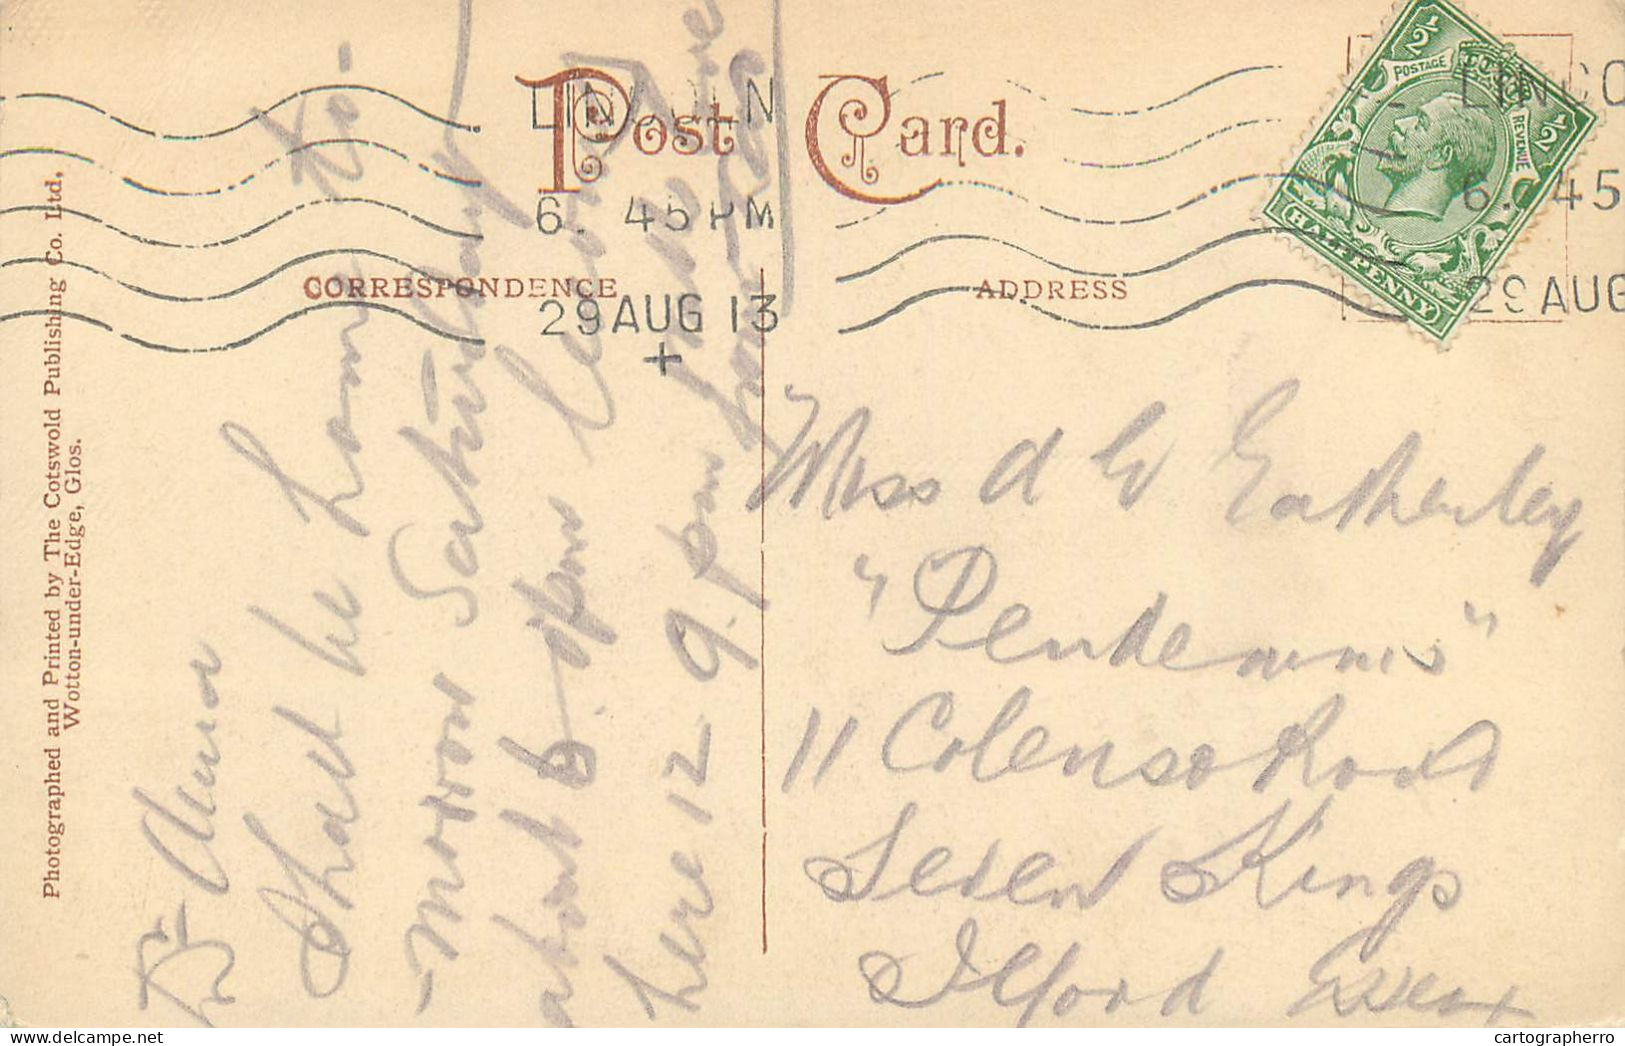 Post Card.
CORRESPONDENCE
ADDRESS
LINCOLN
6. 45 PM
29 AUG 13
+
LINCO
6. 45
29 AUG
½
½
POSTAGE
REVENUE
HALFPENNY
Photographed and Printed by The Cotswold Publishing Co. Ltd,
Wotton-under-Edge, Glos.
Shall be home to-
-morrow Saturday
about 6 pm leaving
here 12-9 pm
Miss A W Eatherley
"Pendennis"
11 Colenso Road
Seven Kings
Ilford Essex
cartographerro